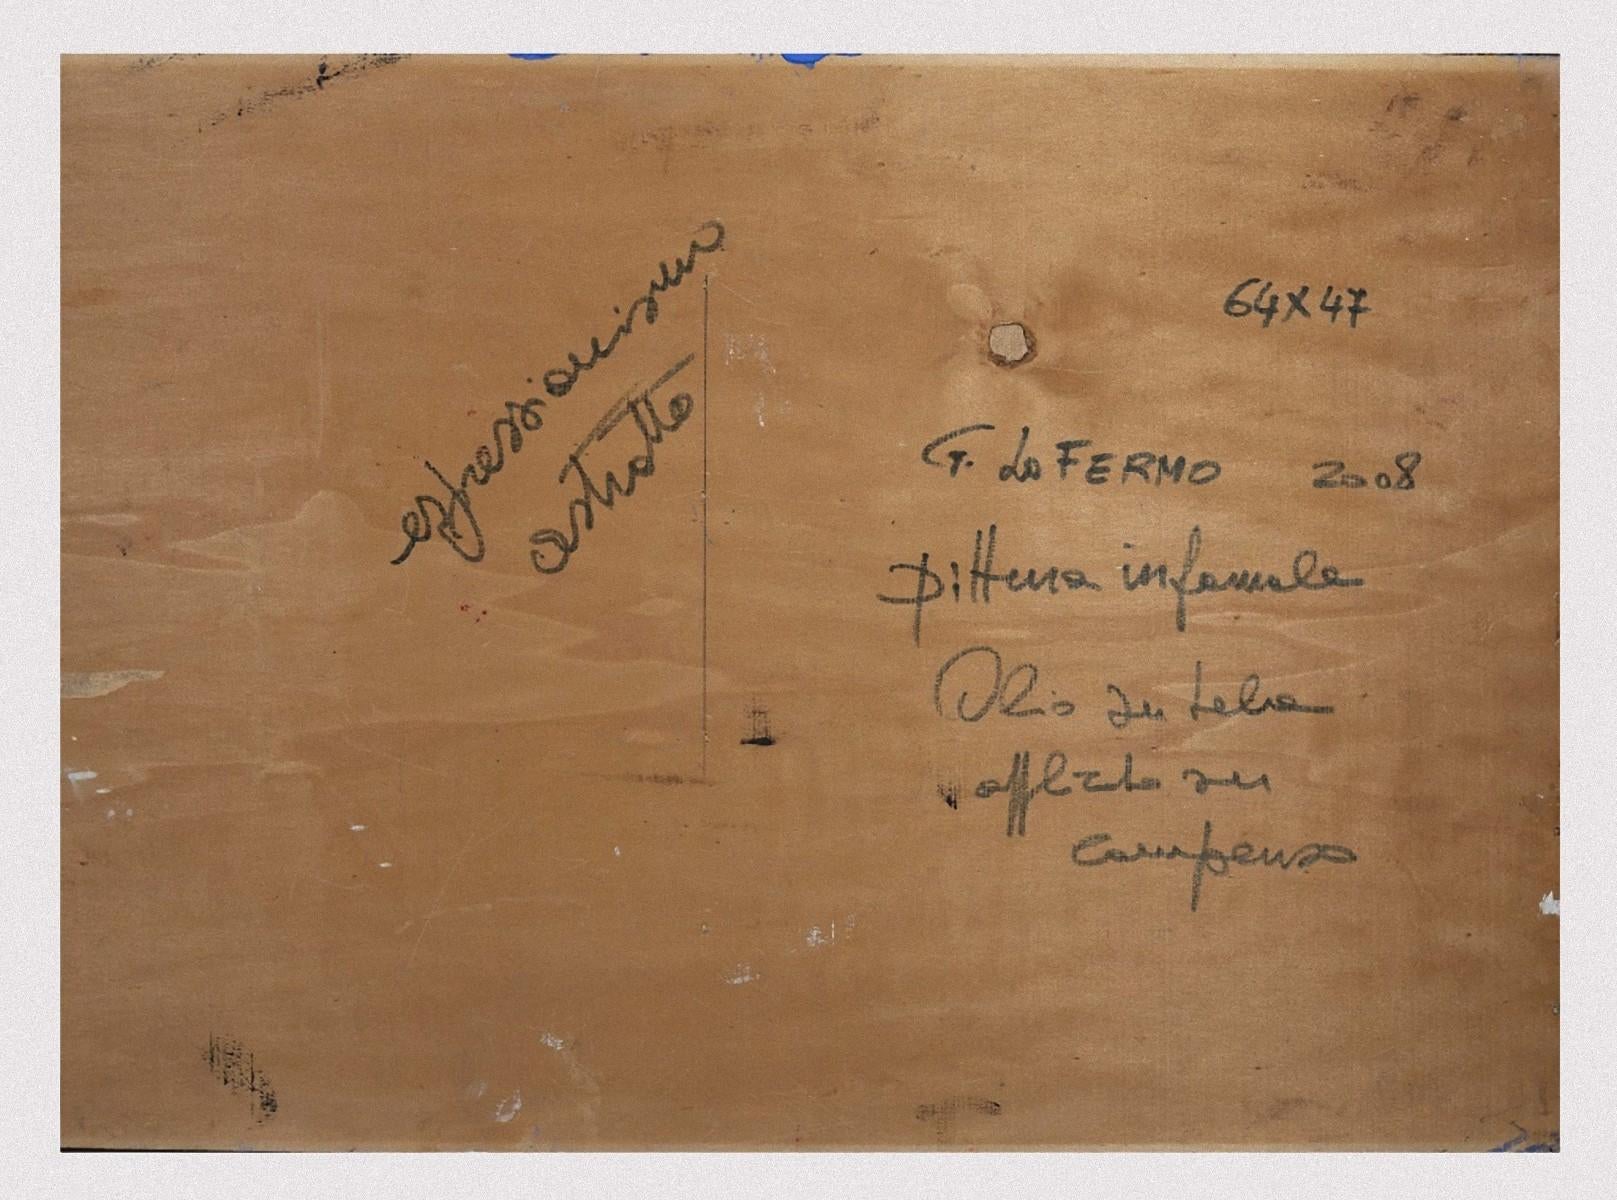 espressionismo
astratto
64x47
G. Lo FERMO 2008
Pittura informale
Olio su tela
applicato su
compenso